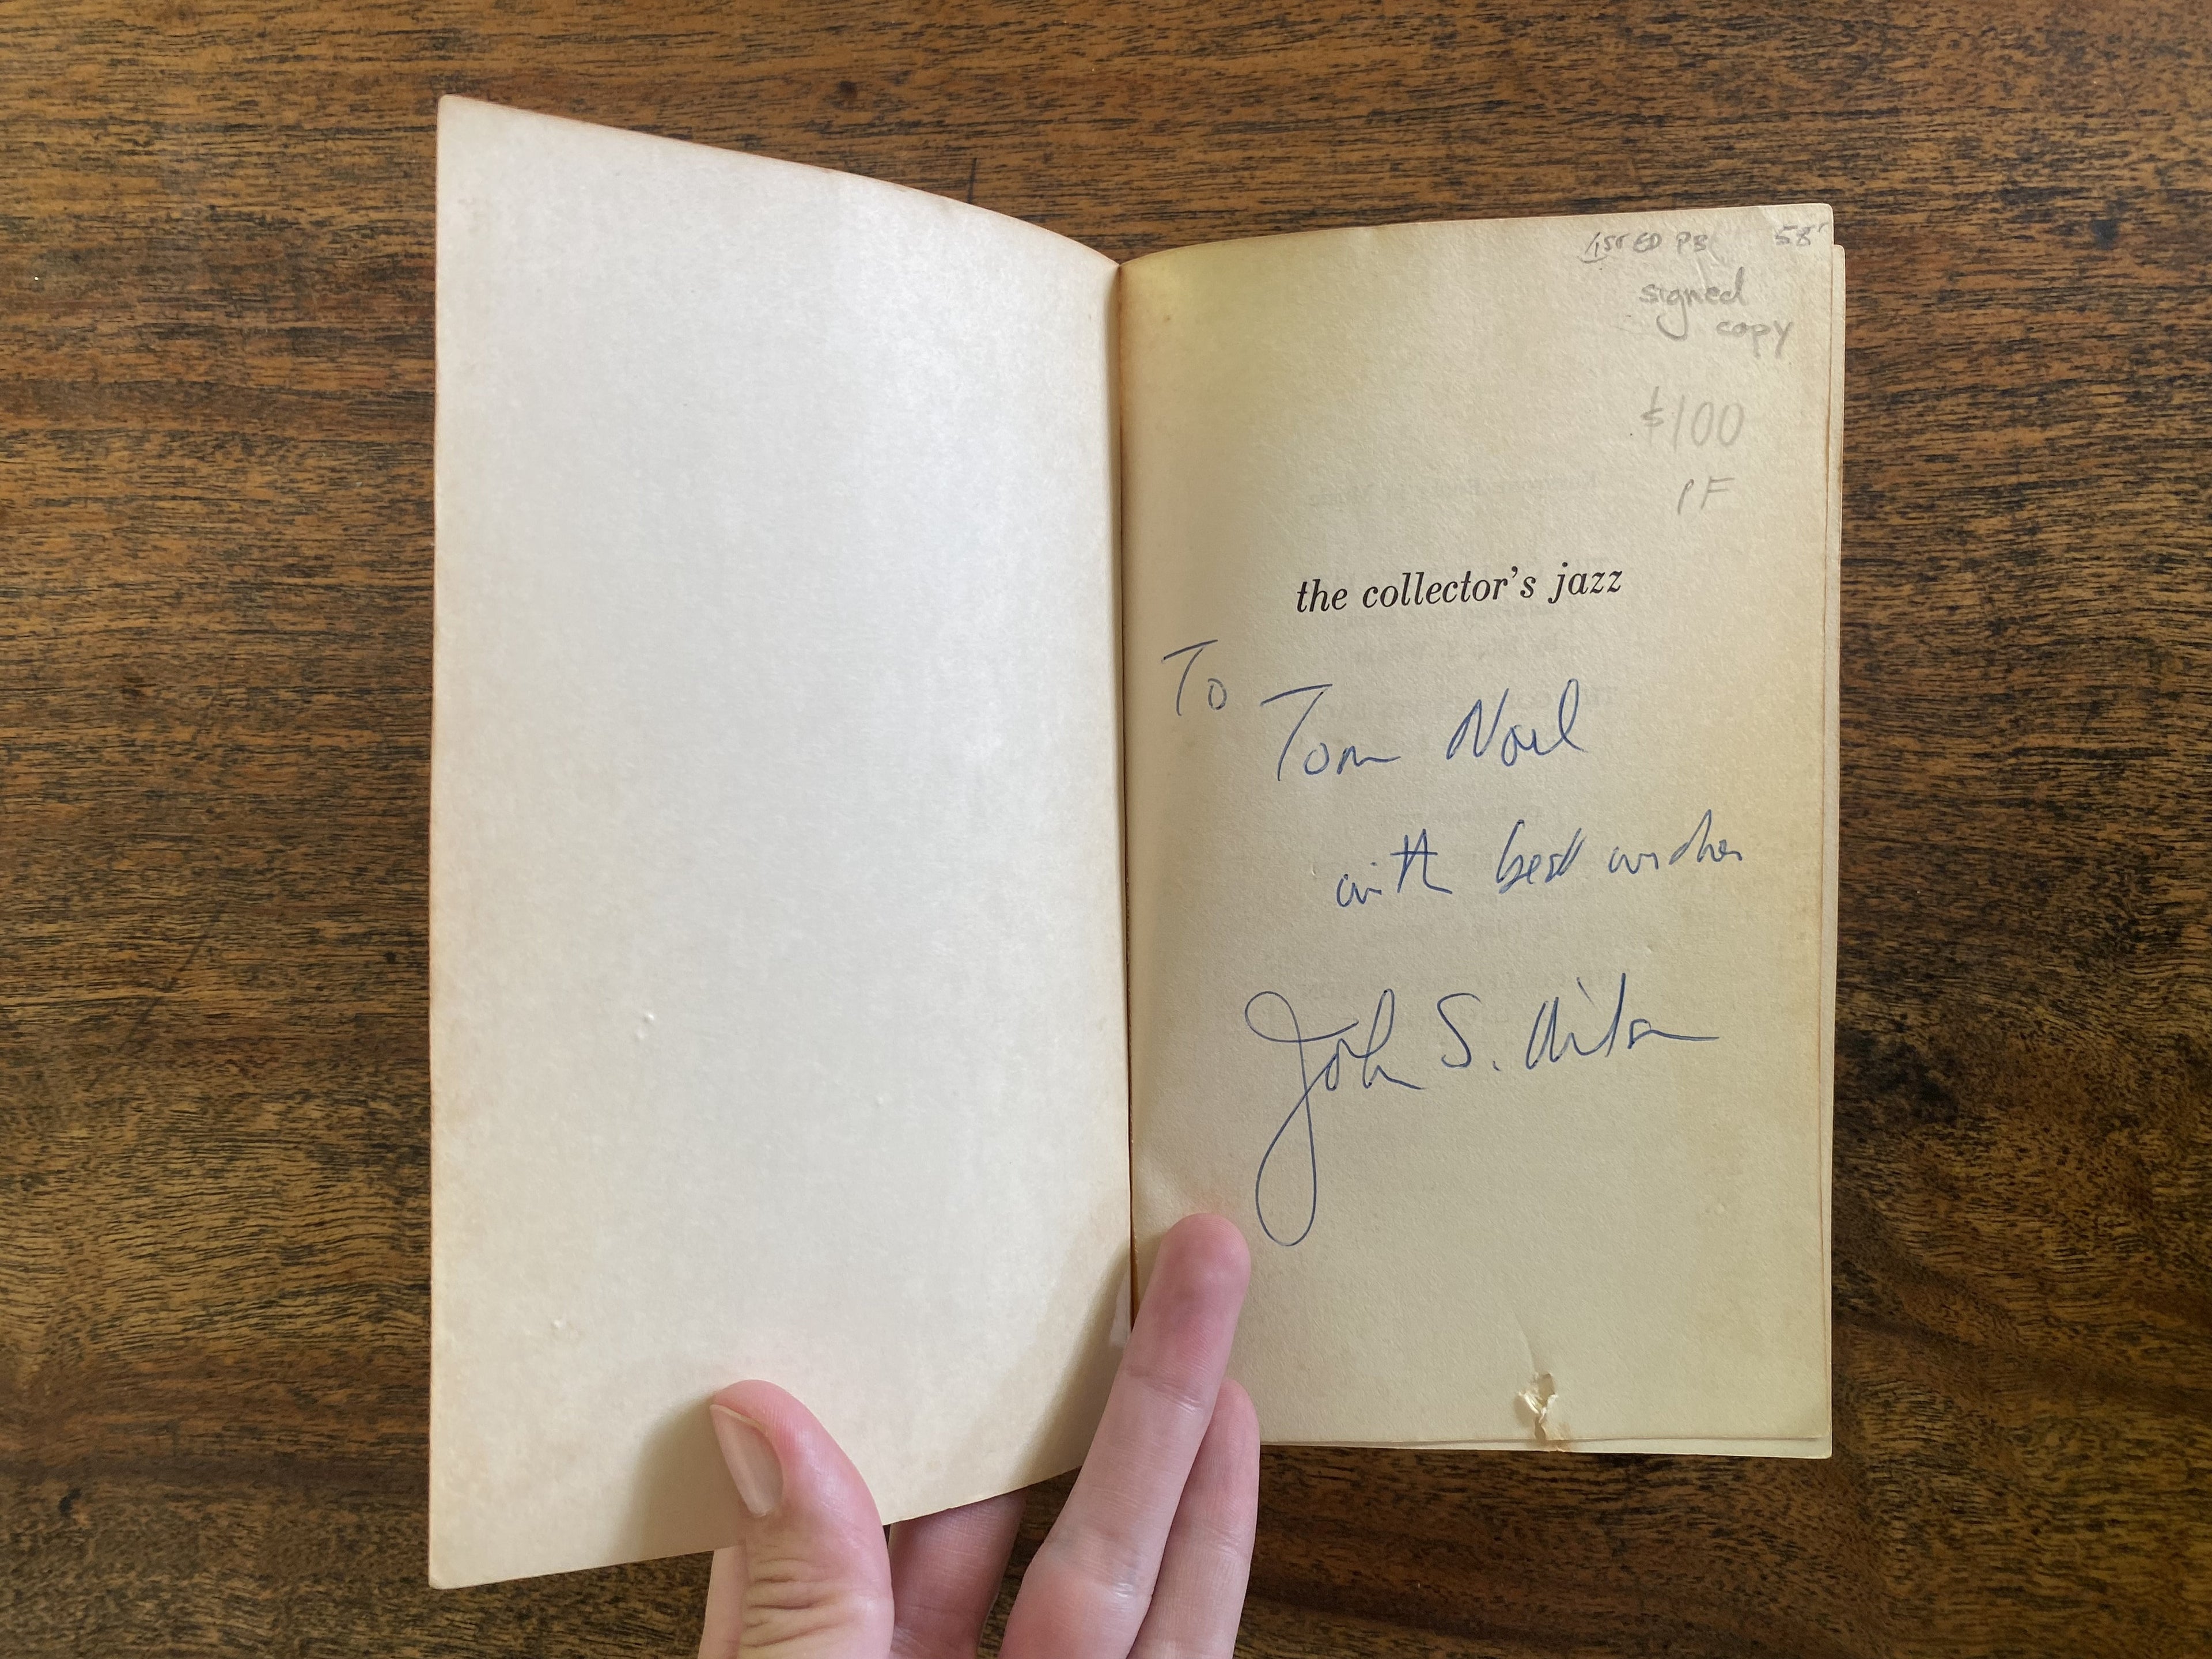 1st ED PB 58'
signed
copy
$100
PF
the collector's jazz
To
Tom Noel
with best wishes
John S. Wilson